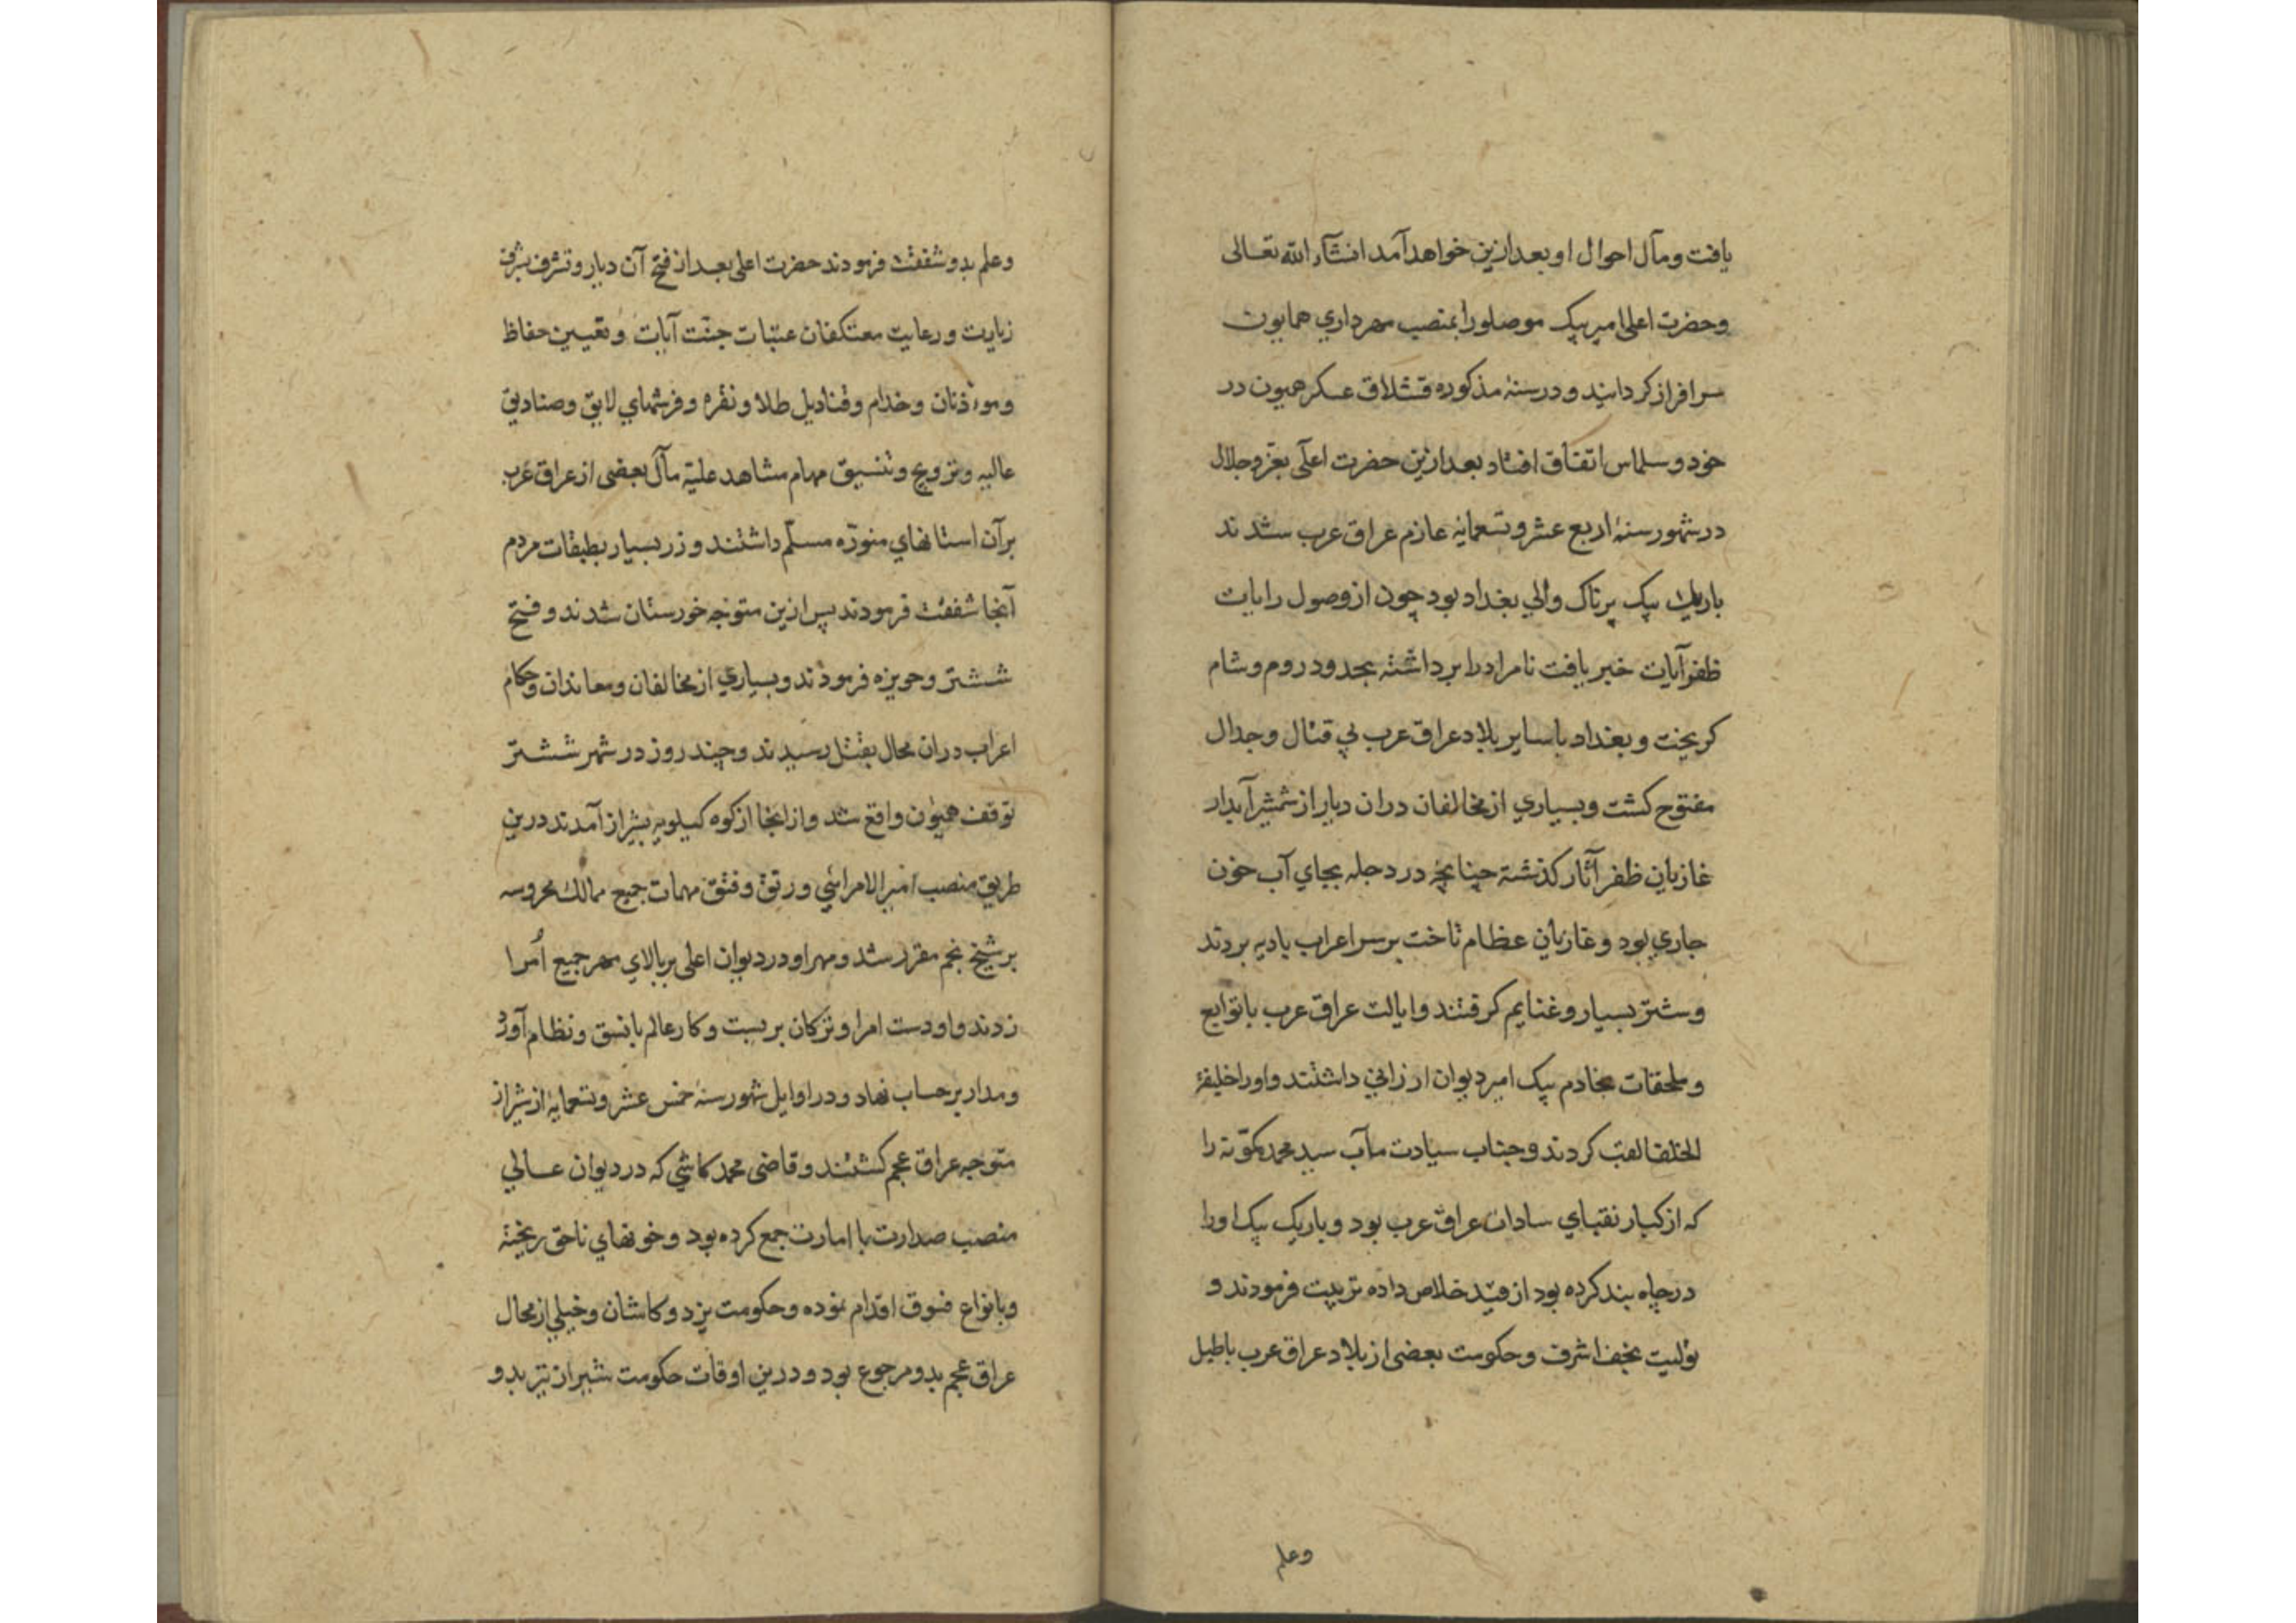 یافت و مآل احوال او بعد ازین خواهد آمد انشآء الله تعالی
و حضرت اعلی امیر بیک موصلو را بمنصب مهرداری همایون
سرافراز کردانید و در سنهٔ مذکوره قشلاق عسکر همیون در
خود و سلماس اتفاق افتاد بعد ازین حضرت اعلی بعزّ و جلال
در شهور سنهٔ اربع عشر و تسعمایه عازم عراق عرب شدند
باریک بیک پرناک والی بغداد بود چون از وصول رایات
ظفرآیات خبر یافت نامراد را برداشته بحدود روم و شام
کریخت و بغداد با سایر بلاد عراق عرب بی قتال و جدال
مفتوح کشت و بسیاری از مخالفان دران دیار از شمشیر آبدار
غازیان ظفر آثار کذشته چنانچه در دجله بجای آب خون
جاری بود و غازیان عظام تاخت بر سر اعراب بادیه بردند
و شتر بسیار و غنایم کرفتند و ایالت عراق عرب با توابع
و ملحقات بخادم بیک امیر دیوان ارزانی داشتند و او را خلیفهٔ
الخلفا لقب کردند و جناب سیادت مآب سید محمد کمّونه را
که از کبار نقبای سادات عراق عرب بود و باریک بیک او را
در چاه بند کرده بود از قید خلاص داده تربیت فرمودند و
تولیت نجف اشرف و حکومت بعضی از بلاد عراق عرب با طبل
وعلم
و علم بدو شفقت فرمودند حضرت اعلی بعد از فتح آن دیار و تشرف بشرف
زیارت و رعایت معتکفان عتبات جنّت آیات و تعیین حفاظ
و موءذنان و خدام و قنادیل طلا و نقره و فرشهای لایق و صنادیق
عالیه و ترویج و تنسیق مهام مشاهد علیّه مآل بعضی از عراق عرب
بر آن استانهای منوّره مسلّم داشتند و زر بسیار بطبقات مردم
آنجا شفقت فرمودند پس ازین متوجه خورستان شدند و فتح
ششتر و حویزه فرمودند و بسیاری از مخالفان و معاندان و حکام
اعراب دران محال بقتل رسیدند و چند روز در شهر ششتر
توقف همیون واقع شد و از انجا از کوه کیلویه بشیراز آمدند درین
طریق منصب امیر الامرائی و رتق و فتق مهمات جمیع ممالک محروسه
بر شیخ نجم مقرر شد و مهر او در دیوان اعلی بر بالای مهر جمیع اُمرا
زدند و او دست امرا و ترکان بر بست و کار عالم با نسق و نظام آورد
و مدار بر حساب نهاد و در اوایل شهور سنهٔ خمس عشر و تسعمایه از شیراز
متوجه عراق عجم کشتند و قاضی محمد کاشی که در دیوان عالی
منصب صدارت با امارت جمع کرده بود و خونهای ناحق ریخته
و بانواع فسوق اقدام نموده و حکومت یزد و کاشان و خیلی از محال
عراق عجم بدو مرجوع بود و درین اوقات حکومت شیراز نیز بدو